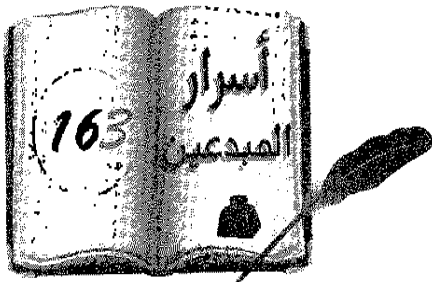 أسرار
المبدعين
163